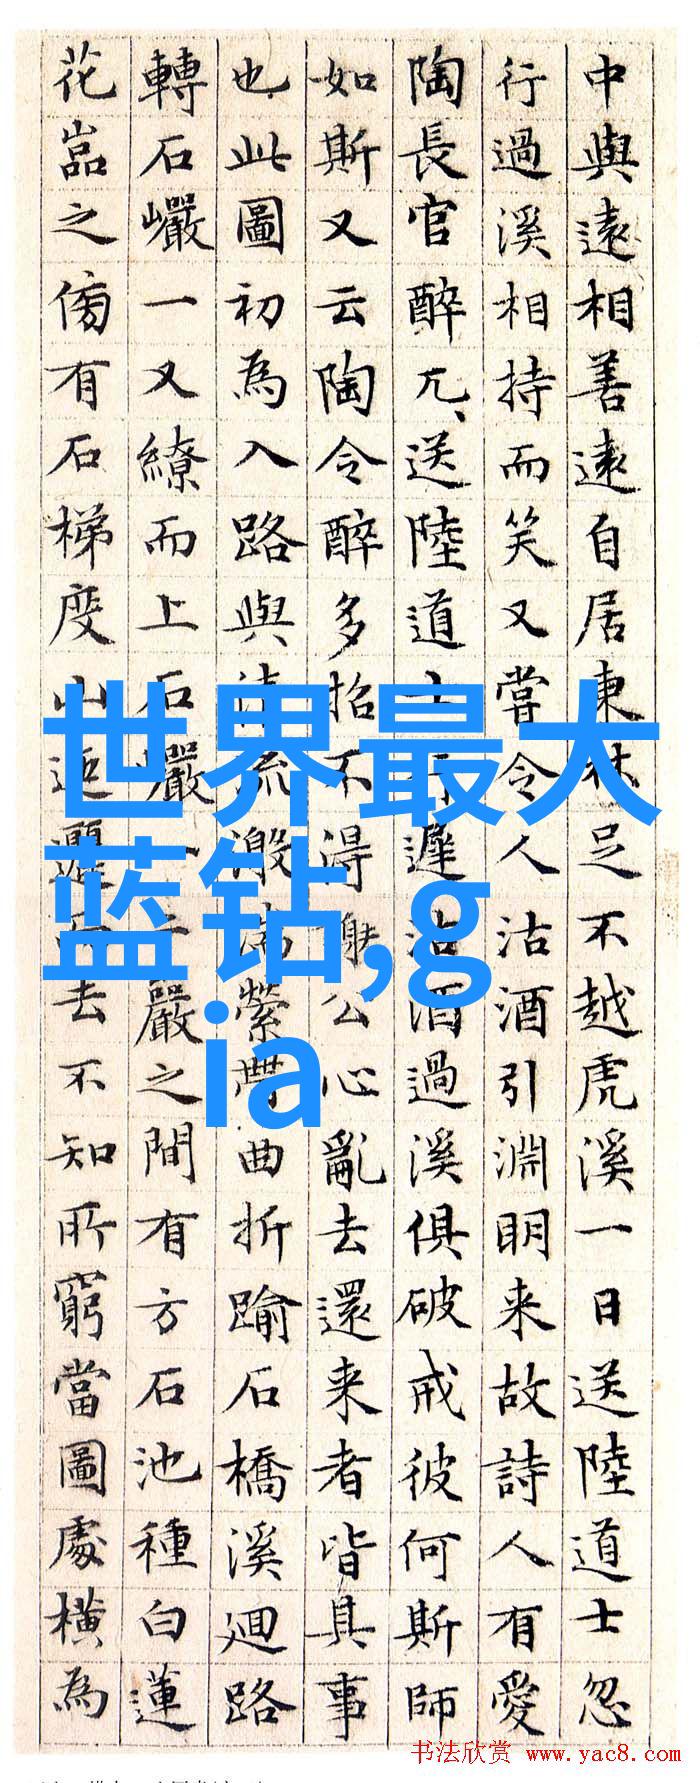 中與遠相善遠自居東林足不越虎溪一日送陸道士忽
行過溪相持而笑又嘗令人沽酒引淵明来故詩人有愛
陶長官醉兀、送陸道士行遲沽酒過溪俱破戒彼何斯師
如斯又云陶令醉多招不得謝公心亂去還来者皆其事
也此圖初為入路與清流激湍縈帶曲折踰石橋溪廻路
轉石巗一又繚而上石巗巖之間有方石池種白蓮
花嵓之傍有石梯度山迤邐而去不知所窮當圖處橫為
世界最大
蓝钻,g
ia
书法欣赏 www.yac8.com